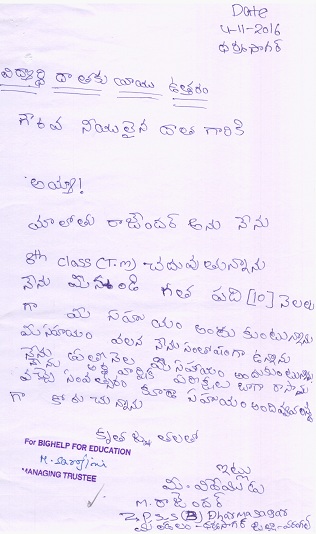 Date
4-11-2016
ధర్మసాగర్
విద్యార్థి దాతకు వ్రాయు ఉత్తరం
గౌరవ నీయులైన దాత గారికి
అయ్యా!
మాలోతు రాజేందర్ అను నేను
8th class (T.m) చదువుతున్నాను
నేను మీ నుండి గత పది [10] నెలలు
గా మీ సహాయం అందుకుంటున్నాను
మీ సహాయం వలన నేను సంతోషంగా ఉన్నాను
నేను ప్రతి నెల మీ సహాయం అందుకుంటున్నాను
నేను వార్షిక పరీక్షలు బాగా రాసాను
వచ్చే సంవత్సరం కూడా సహాయం అందివ్వవలసిం
గా కోరుచున్నాను
కృతజ్ఞతలతో
For BIGHELP FOR EDUCATION
M. Sarojini
MANAGING TRUSTEE
ఇట్లు
మీ విధేయుడు
M. రాజేందర్
Z.P.S.S (B) Dharmasagar
మండలం - ధర్మసాగర్ జిల్లా - వరంగల్